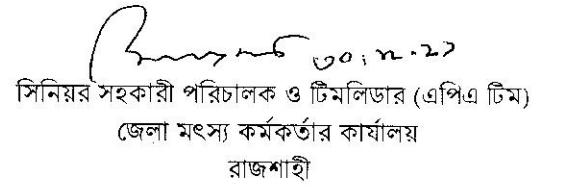 ৩০.১২.২১
সিনিয়র সহকারী পরিচালক ও টিমলিডার (এপিএ টিম)
জেলা মৎস্য কর্মকর্তার কার্যালয়
রাজশাহী